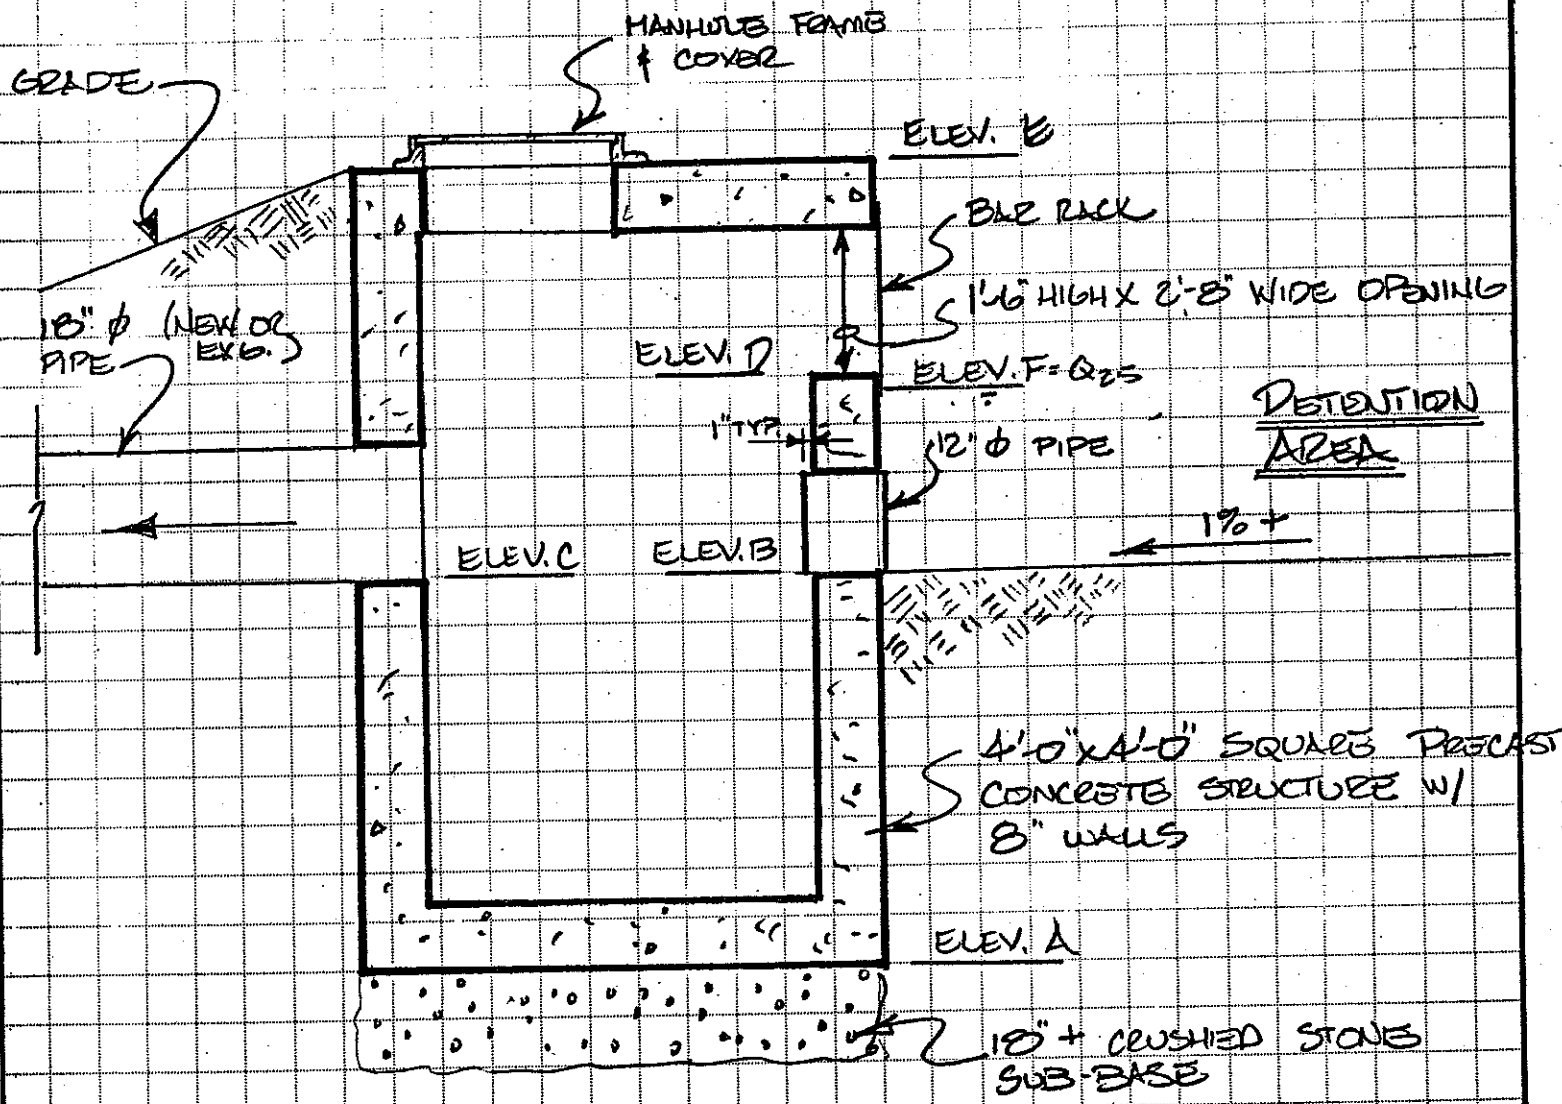 MANHOLE FRAME
& COVER
GRADE
ELEV. E
BAR RACK
1'-6" HIGH X 2'-8" WIDE OPENING
18" ϕ (NEW OR
PIPE EXG.)
ELEV. D
ELEV. F = Q25
DETENTION
AREA
1" TYP.
12" ϕ PIPE
1% +
ELEV. C
ELEV. B
4'-0" x 4'-0" SQUARE PRECAST
CONCRETE STRUCTURE W/
8" WALLS
ELEV. A
18" + CRUSHED STONE
SUB-BASE